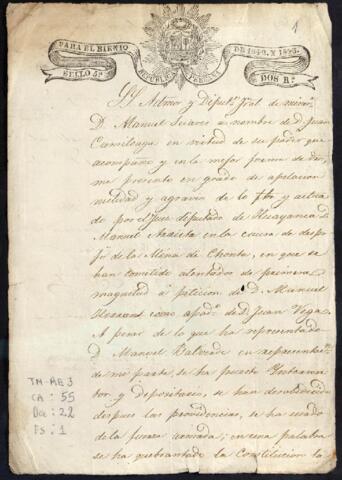 1
PARA EL BIENIO
DE 1840. Y 1841.
SELLO 5º
REPUBLICA PERUANA
DOS Rˢ
D. Manuel Suarez a nombre de D. Juan
en virtud de su poder que
acompaño y en la mejor forma de dro,
me presento en grado de apelacion
nulidad y agravio de lo
de por el Juez diputado de Huayanca D.
Manuel en la causa de despo
jo de la Mina de Chonta, en que se
han cometido atentados de primera
magnitud a peticion de D. Manuel
como apodº de D. Juan Vega.
A pesar de lo que ha representado
D. Manuel Valverde en representacⁿ
de mi parte se ha puesto Interven
tor y depositario, se han desobedecido
despues las providencias, se ha usado
de la fuerza armada; en una palabra
se ha quebrantado la Constitucion la
TM-AE 3
CA : 55
Doc : 22
Fs : 1